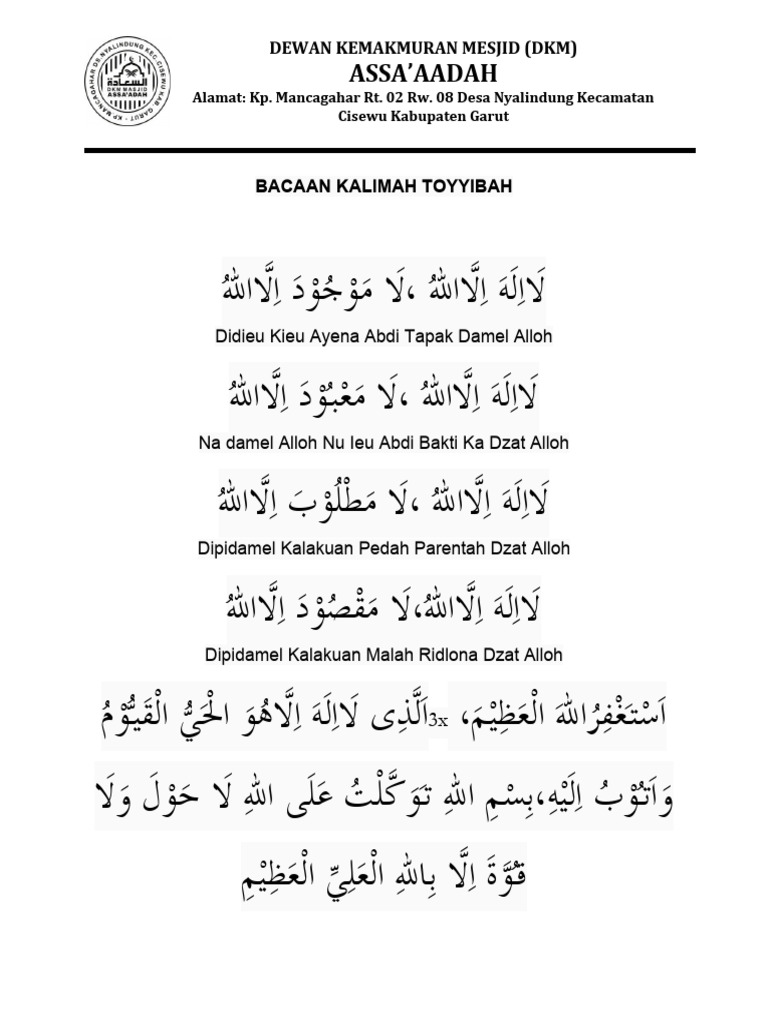 DEWAN KEMAKMURAN MESJID (DKM)
ASSA’AADAH
Alamat: Kp. Mancagahar Rt. 02 Rw. 08 Desa Nyalindung Kecamatan
Cisewu Kabupaten Garut
KP MANCAGAHAR DS.NYALINDUNG KEC.CISEWU KAB GARUT
السعادة
DKM MASJID
ASSA'ADAH
BACAAN KALIMAH TOYYIBAH
لَااِلَهَ اِلَّااللهُ ،لَا مَوْجُوْدَ اِلَّااللهُ
Didieu Kieu Ayena Abdi Tapak Damel Alloh
لَااِلَهَ اِلَّااللهُ ،لَا مَعْبُوْدَ اِلَّااللهُ
Na damel Alloh Nu Ieu Abdi Bakti Ka Dzat Alloh
لَااِلَهَ اِلَّااللهُ ،لَا مَطْلُوْبَ اِلَّااللهُ
Dipidamel Kalakuan Pedah Parentah Dzat Alloh
لَااِلَهَ اِلَّااللهُ،لَا مَقْصُوْدَ اِلَّااللهُ
Dipidamel Kalakuan Malah Ridlona Dzat Alloh
اَسْتَغْفِرُاللهَ الْعَظِيْمَ، 3x اَلَّذِى لَااِلَهَ اِلَّاهُوَ الْحَيُّ الْقَيُّوْمُ
وَاَتُوْبُ اِلَيْهِ،بِسْمِ اللهِ تَوَكَّلْتُ عَلَى اللهِ لَا حَوْلَ وَلَا
قُوَّةَ اِلَّا بِاللهِ الْعَلِيِّ الْعَظِيْمِ